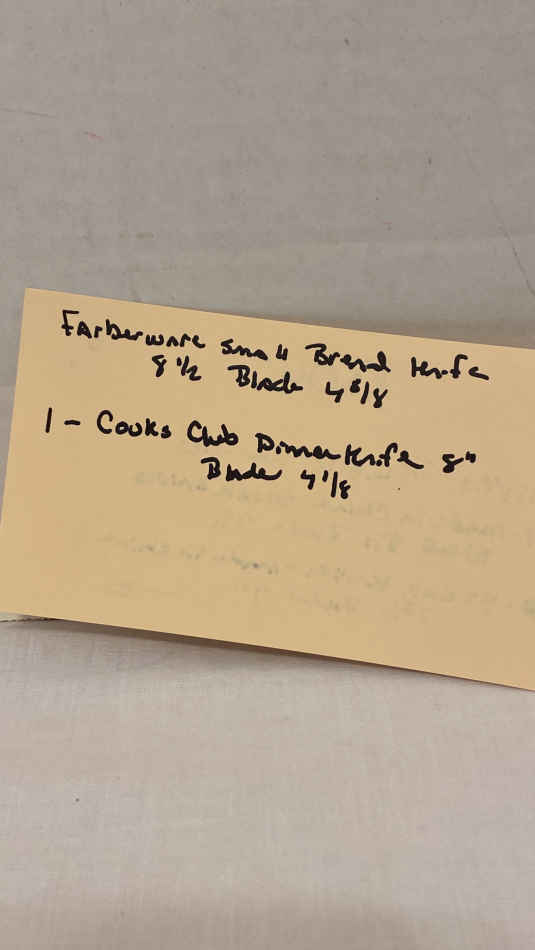 Farberware Small Bread Knife
8 1/2 Blade 4 5/8
1 - Cooks Club Dinner Knife 8"
Blade 4 1/8